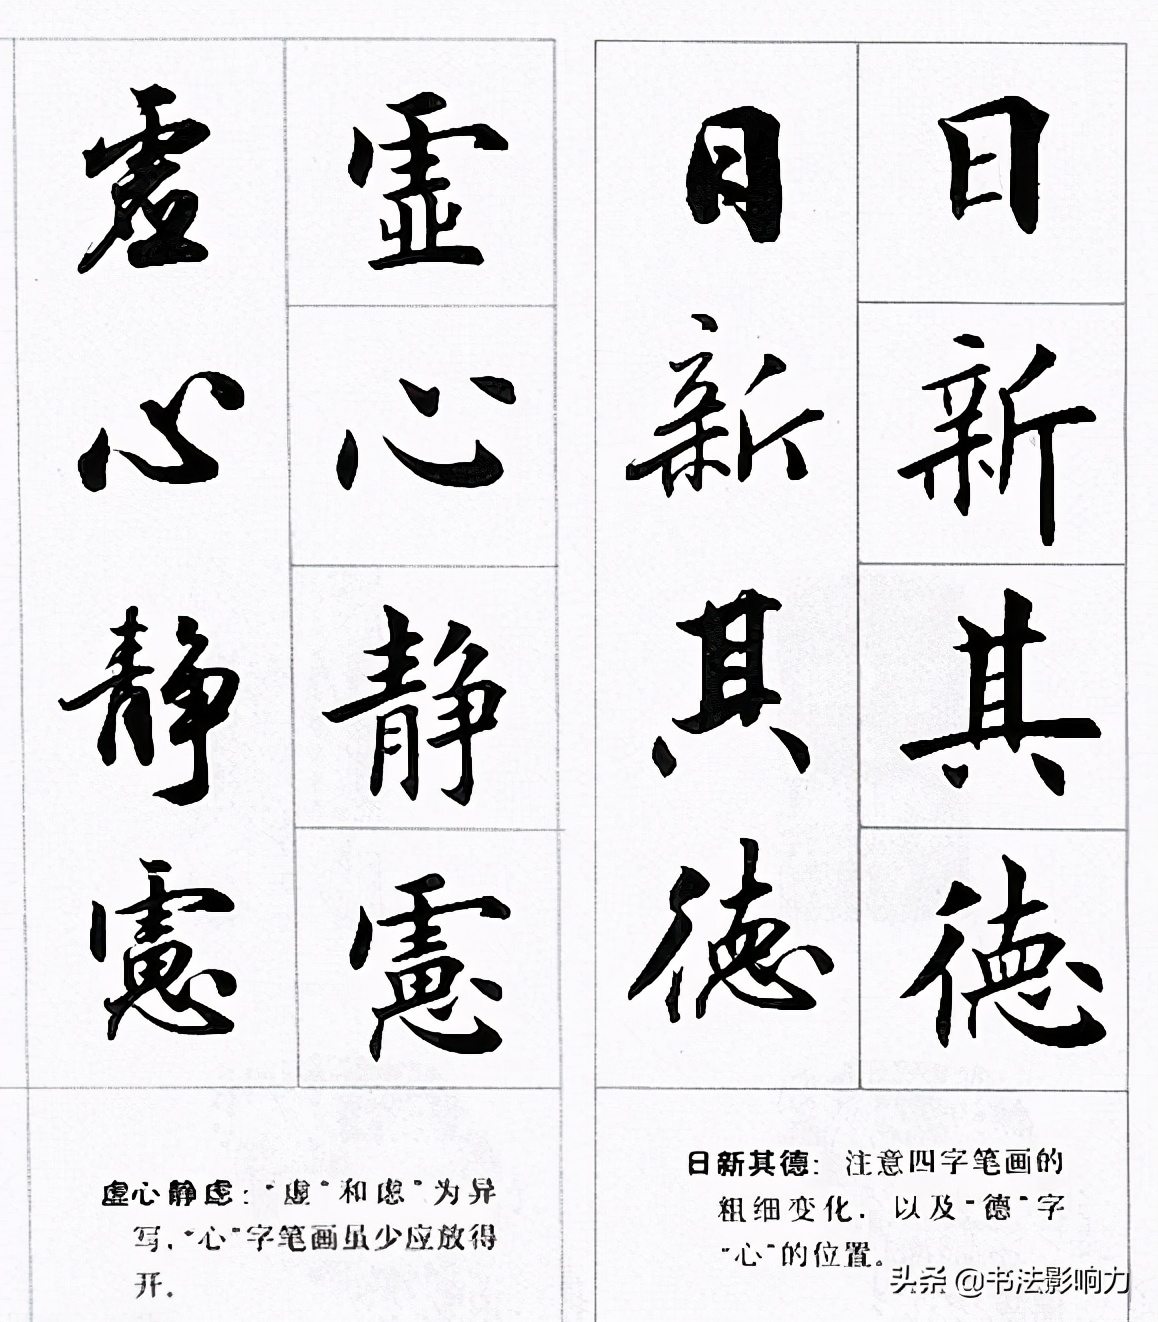 日新其德
日新其德
日新其德：注意四字笔画的
粗细变化，以及“德”字
“心”的位置。
虚心静慮
虚心静慮
虚心静虑：“虚”和虑”为异
写，“心”字笔画虽少应放得
开。
头条 @书法影响力